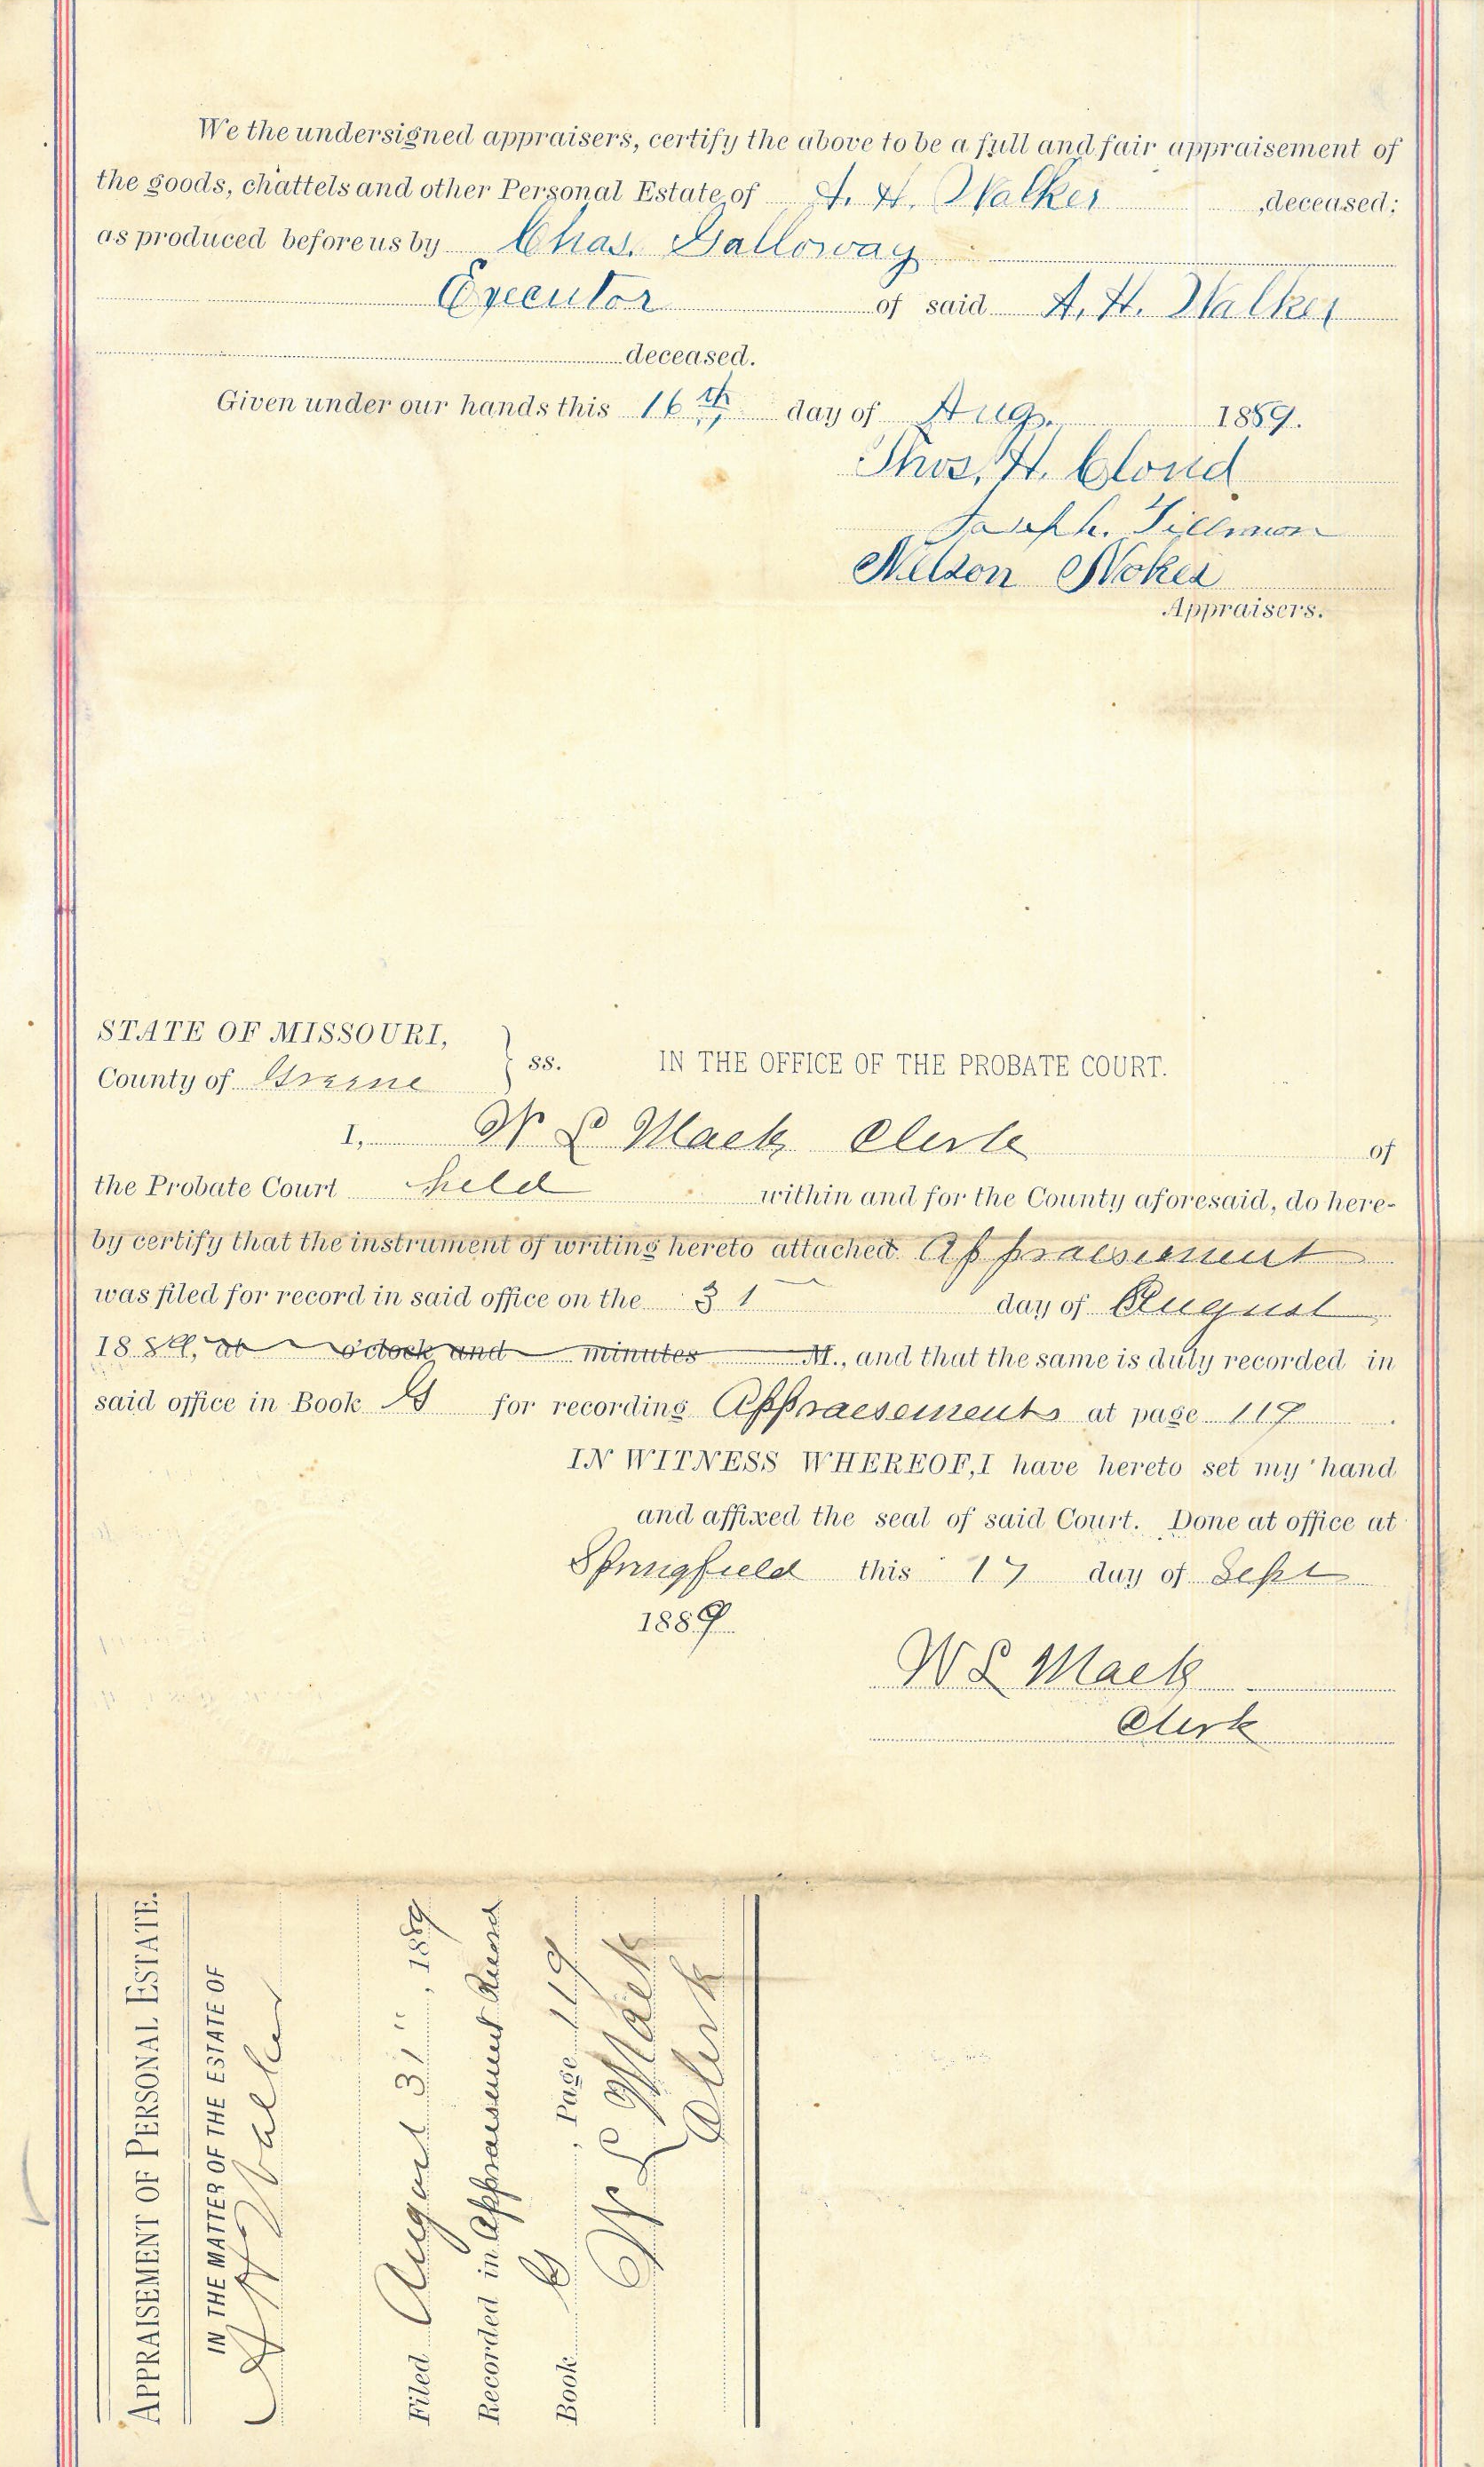 We the undersigned appraisers, certify the above to be a full and fair appraisement of
the goods, chattels and other Personal Estate of A. H. Walker ,deceased;
as produced before us by Chas. Galloway
Executor of said A. H. Walker
deceased.
Given under our hands this 16th day of Aug. 1889.
Thos. H. Cloud
Joseph. Tillmon
Nelson Nokes
Appraisers.
STATE OF MISSOURI,
County of Greene } ss. IN THE OFFICE OF THE PROBATE COURT.
I, W L Mack Clerk of
the Probate Court held within and for the County aforesaid, do here-
by certify that the instrument of writing hereto attached Appraisement
was filed for record in said office on the 31 day of August
1889, at o'clock and minutes M., and that the same is duly recorded in
said office in Book G for recording Appraesements at page 119
IN WITNESS WHEREOF, I have hereto set my hand
and affixed the seal of said Court. Done at office at
Springfield this 17 day of Sept
1889
W L Mack
Clerk
APPRAISEMENT OF PERSONAL ESTATE.
IN THE MATTER OF THE ESTATE OF
A H Walker
Filed August 31", 1889
Recorded in Appraisement Record
Book G, Page 119
W L Mack
Clerk